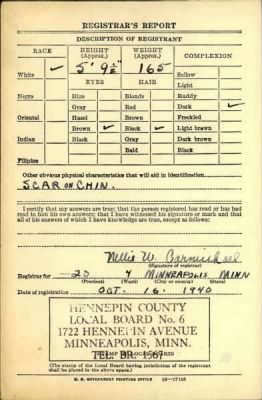 REGISTRAR'S REPORT
DESCRIPTION OF REGISTRANT
RACE HEIGHT (Approx.) WEIGHT (Approx.) COMPLEXION
White ✓ 5' 9½" 165 Sallow
EYES HAIR Light
Negro Blue Blonde Ruddy
Gray Red Dark ✓
Oriental Hazel Brown Freckled
Brown ✓ Black ✓ Light brown
Indian Black Gray Dark brown
Bald Black
Filipino
Other obvious physical characteristics that will aid in identification
SCAR ON CHIN.
I certify that my answers are true; that the person registered has read or has had read to him his own answers; that I have witnessed his signature or mark and that all of his answers of which I have knowledge are true, except as follows:
Nellie W. Carmichael
(Signature of registrar)
Registrar for 20 4 MINNEAPOLIS MINN
(Precinct) (Ward) (City or county) (State)
Date of registration OCT. 16. 1940
HENNEPIN COUNTY
LOCAL BOARD No. 6
1722 HENNEPIN AVENUE
MINNEAPOLIS, MINN.
TEL. BR. 1567
(The stamp of the Local Board having jurisdiction of the registrant shall be placed in the above space.)
U. S. GOVERNMENT PRINTING OFFICE 16—17105